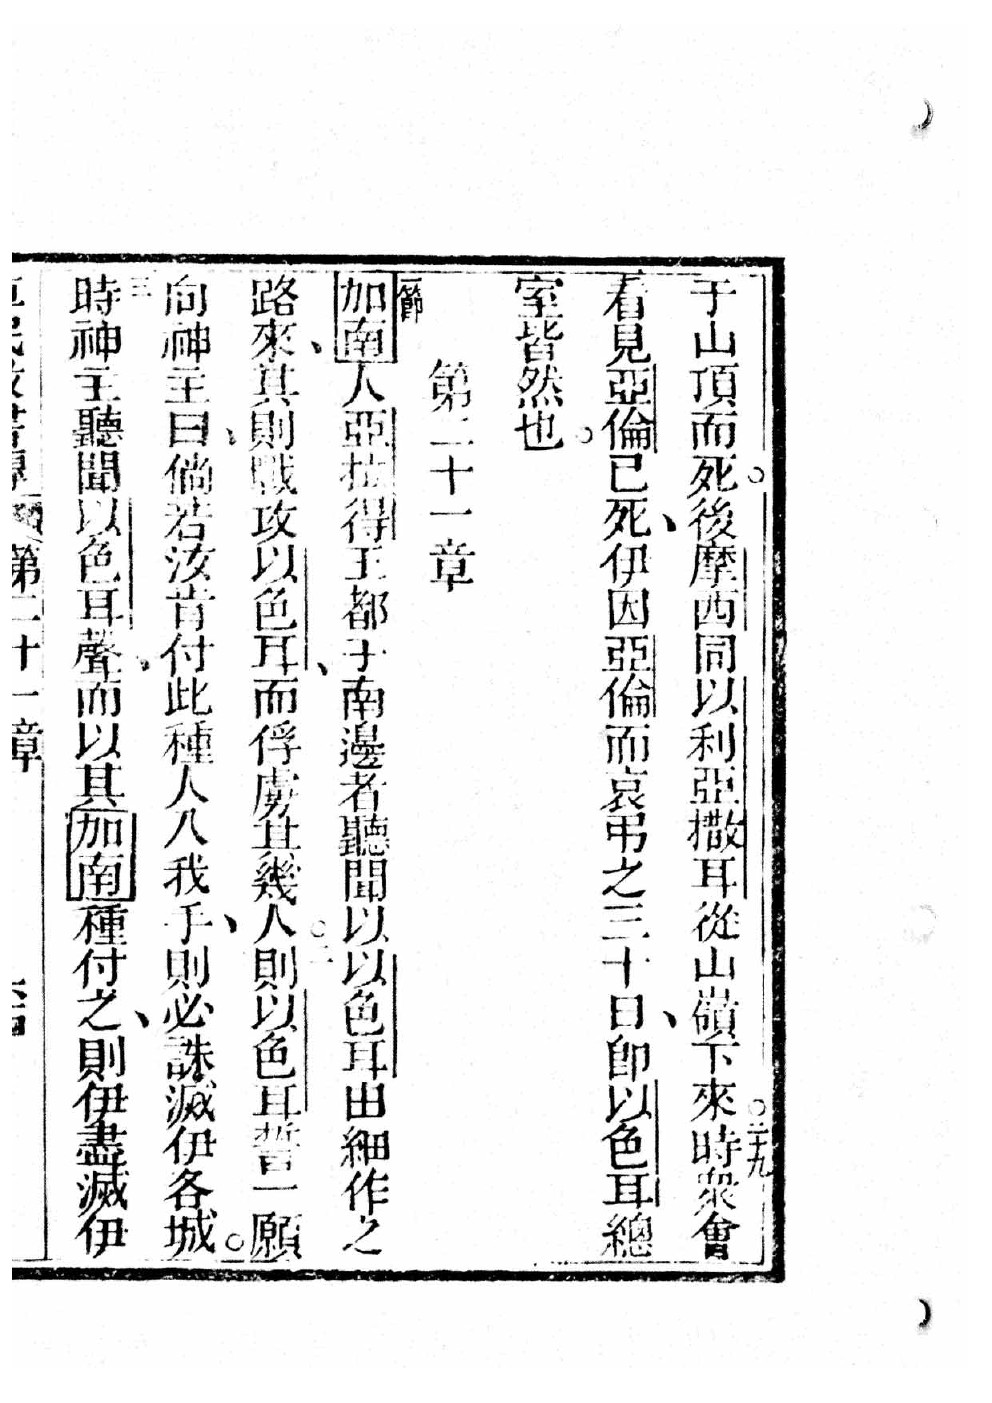 于山頂而死○後摩西同以利亞撒耳從山嶺下來○二十九時衆會
看見亞倫已死、伊因亞倫而哀弔之三十日、卽以色耳總
室皆然也○
第二十一章
一節加南人亞拉得王都于南邊者聽聞以以色耳由細作之
路來、其則戰攻以色耳、而俘虜其幾人○二則以色耳誓一願
向神主曰、倘若汝肯付此種人入我手、則必誅滅伊各城○
三時神主聽聞以色耳聲、而以其加南種付之、則伊盡滅伊
第二十一章